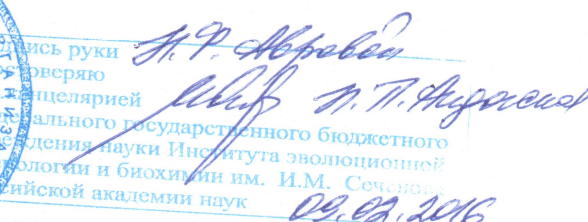 дпись руки Н.Ф. Авровой
остоверяю
анцелярией Н.П. Андосская
дерального государственного бюджетного
реждения науки Института эволюционной
зиологии и биохимии им. И.М. Сеченова
сийской академии наук 09.02.2016